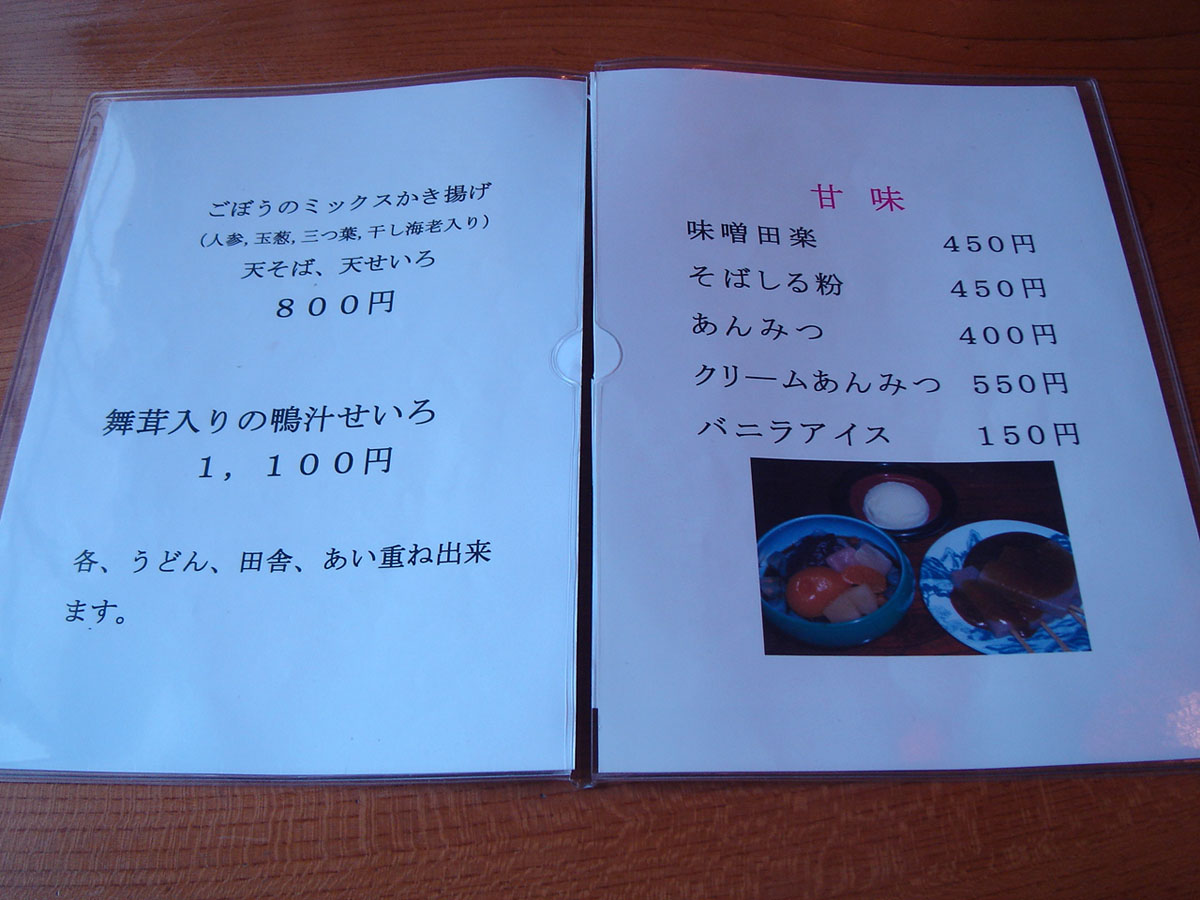 ごぼうのミックスかき揚げ
(人参,玉葱,三つ葉,干し海老入り)
天そば、天せいろ
８００円
舞茸入りの鴨汁せいろ
１，１００円
各、うどん、田舎、あい重ね出来
ます。
甘 味
味噌田楽 450円
そばしる粉 450円
あんみつ 400円
クリームあんみつ 550円
バニラアイス 150円